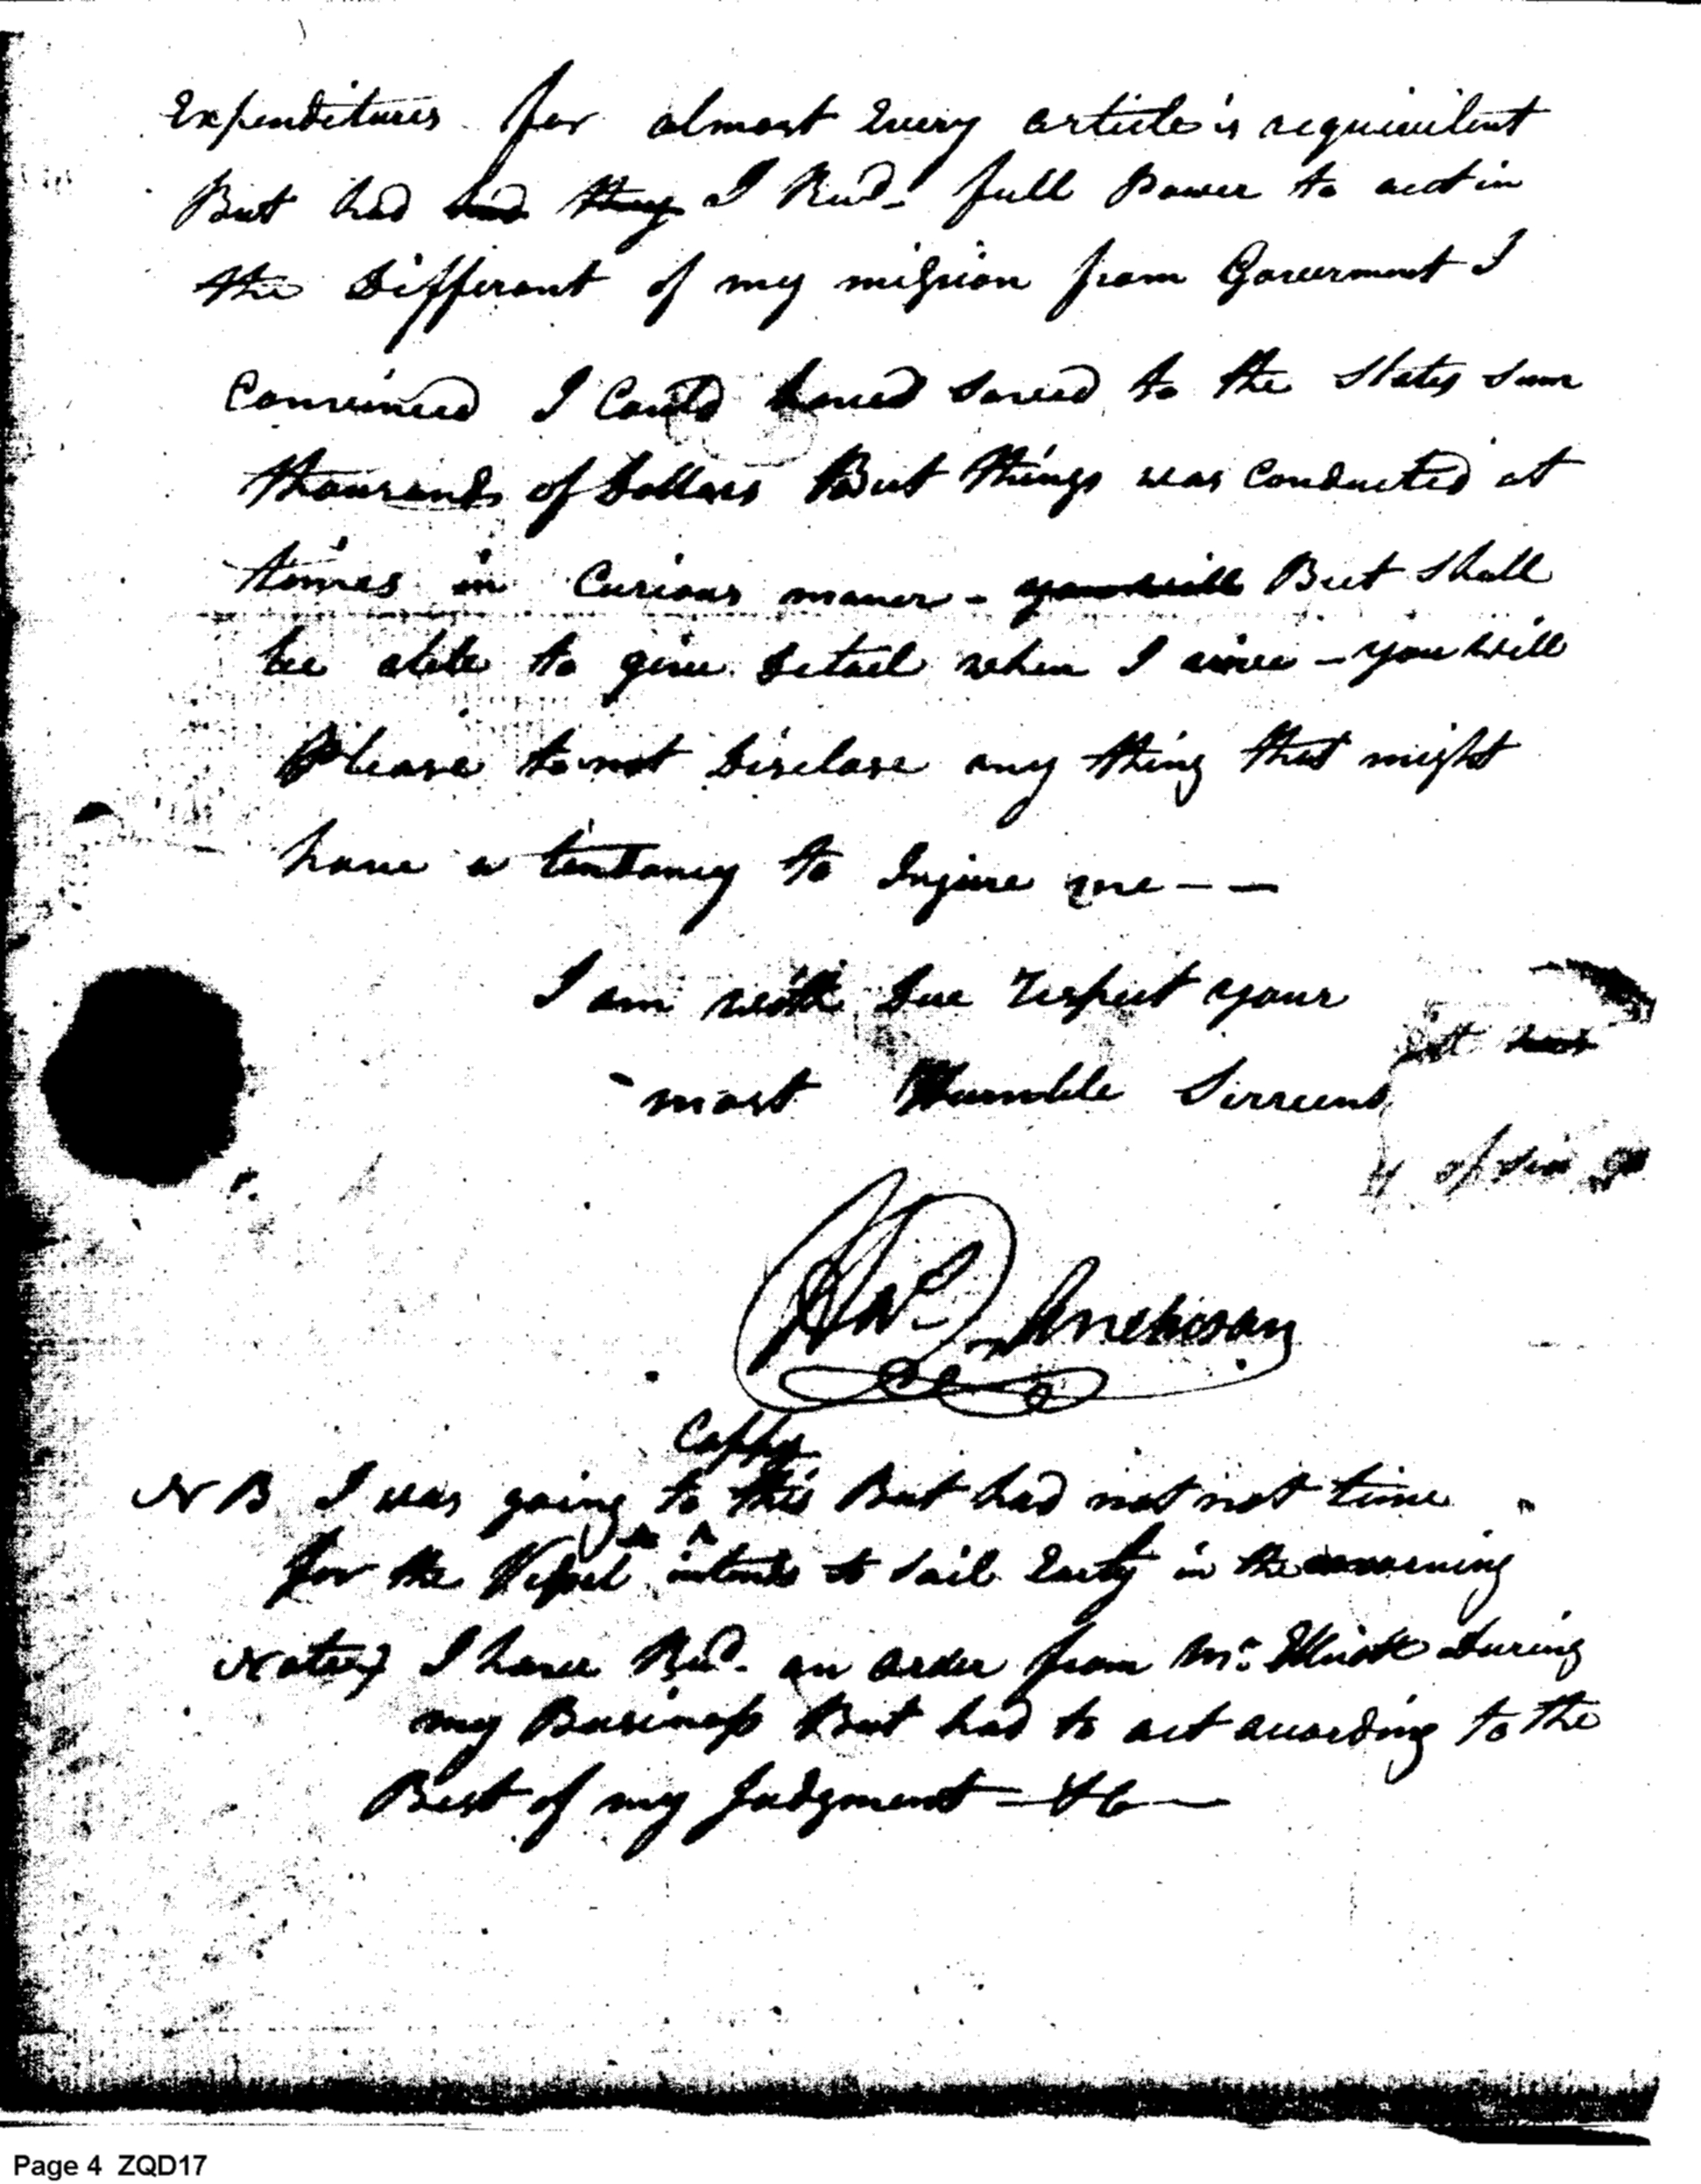 Expenditures for almost Every article is aequivilent
But had had they I Recd. full Power to act in
the Different of my mission from Goverment I
Convinced I Could haved saved to the States sum
thousands of Dollars But things was Conducted at
times in Curious maner - you will But Shall
be able to give Detail when I arive - you will
Please to not Disclose any thing that might
have a tendancy to Injure me - -
I am with Due respect your
most Humble Servent
Coppy
N B I was going to this But had not not time
for the Vessel intends to Sail Early in the morning
Note I have Recd. an order from Mr. Elliott During
my Business But had to act according to the
Best of my Judgment - &c -
Page 4 ZQD17